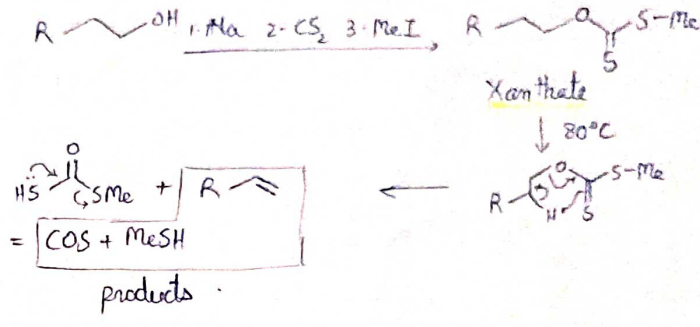 R OH 1. Na 2. CS2 3. MeI R O S-Me
S
Xanthate
80°C
O
HS SMe + R
R O S-Me
H S
= COS + MeSH
products.